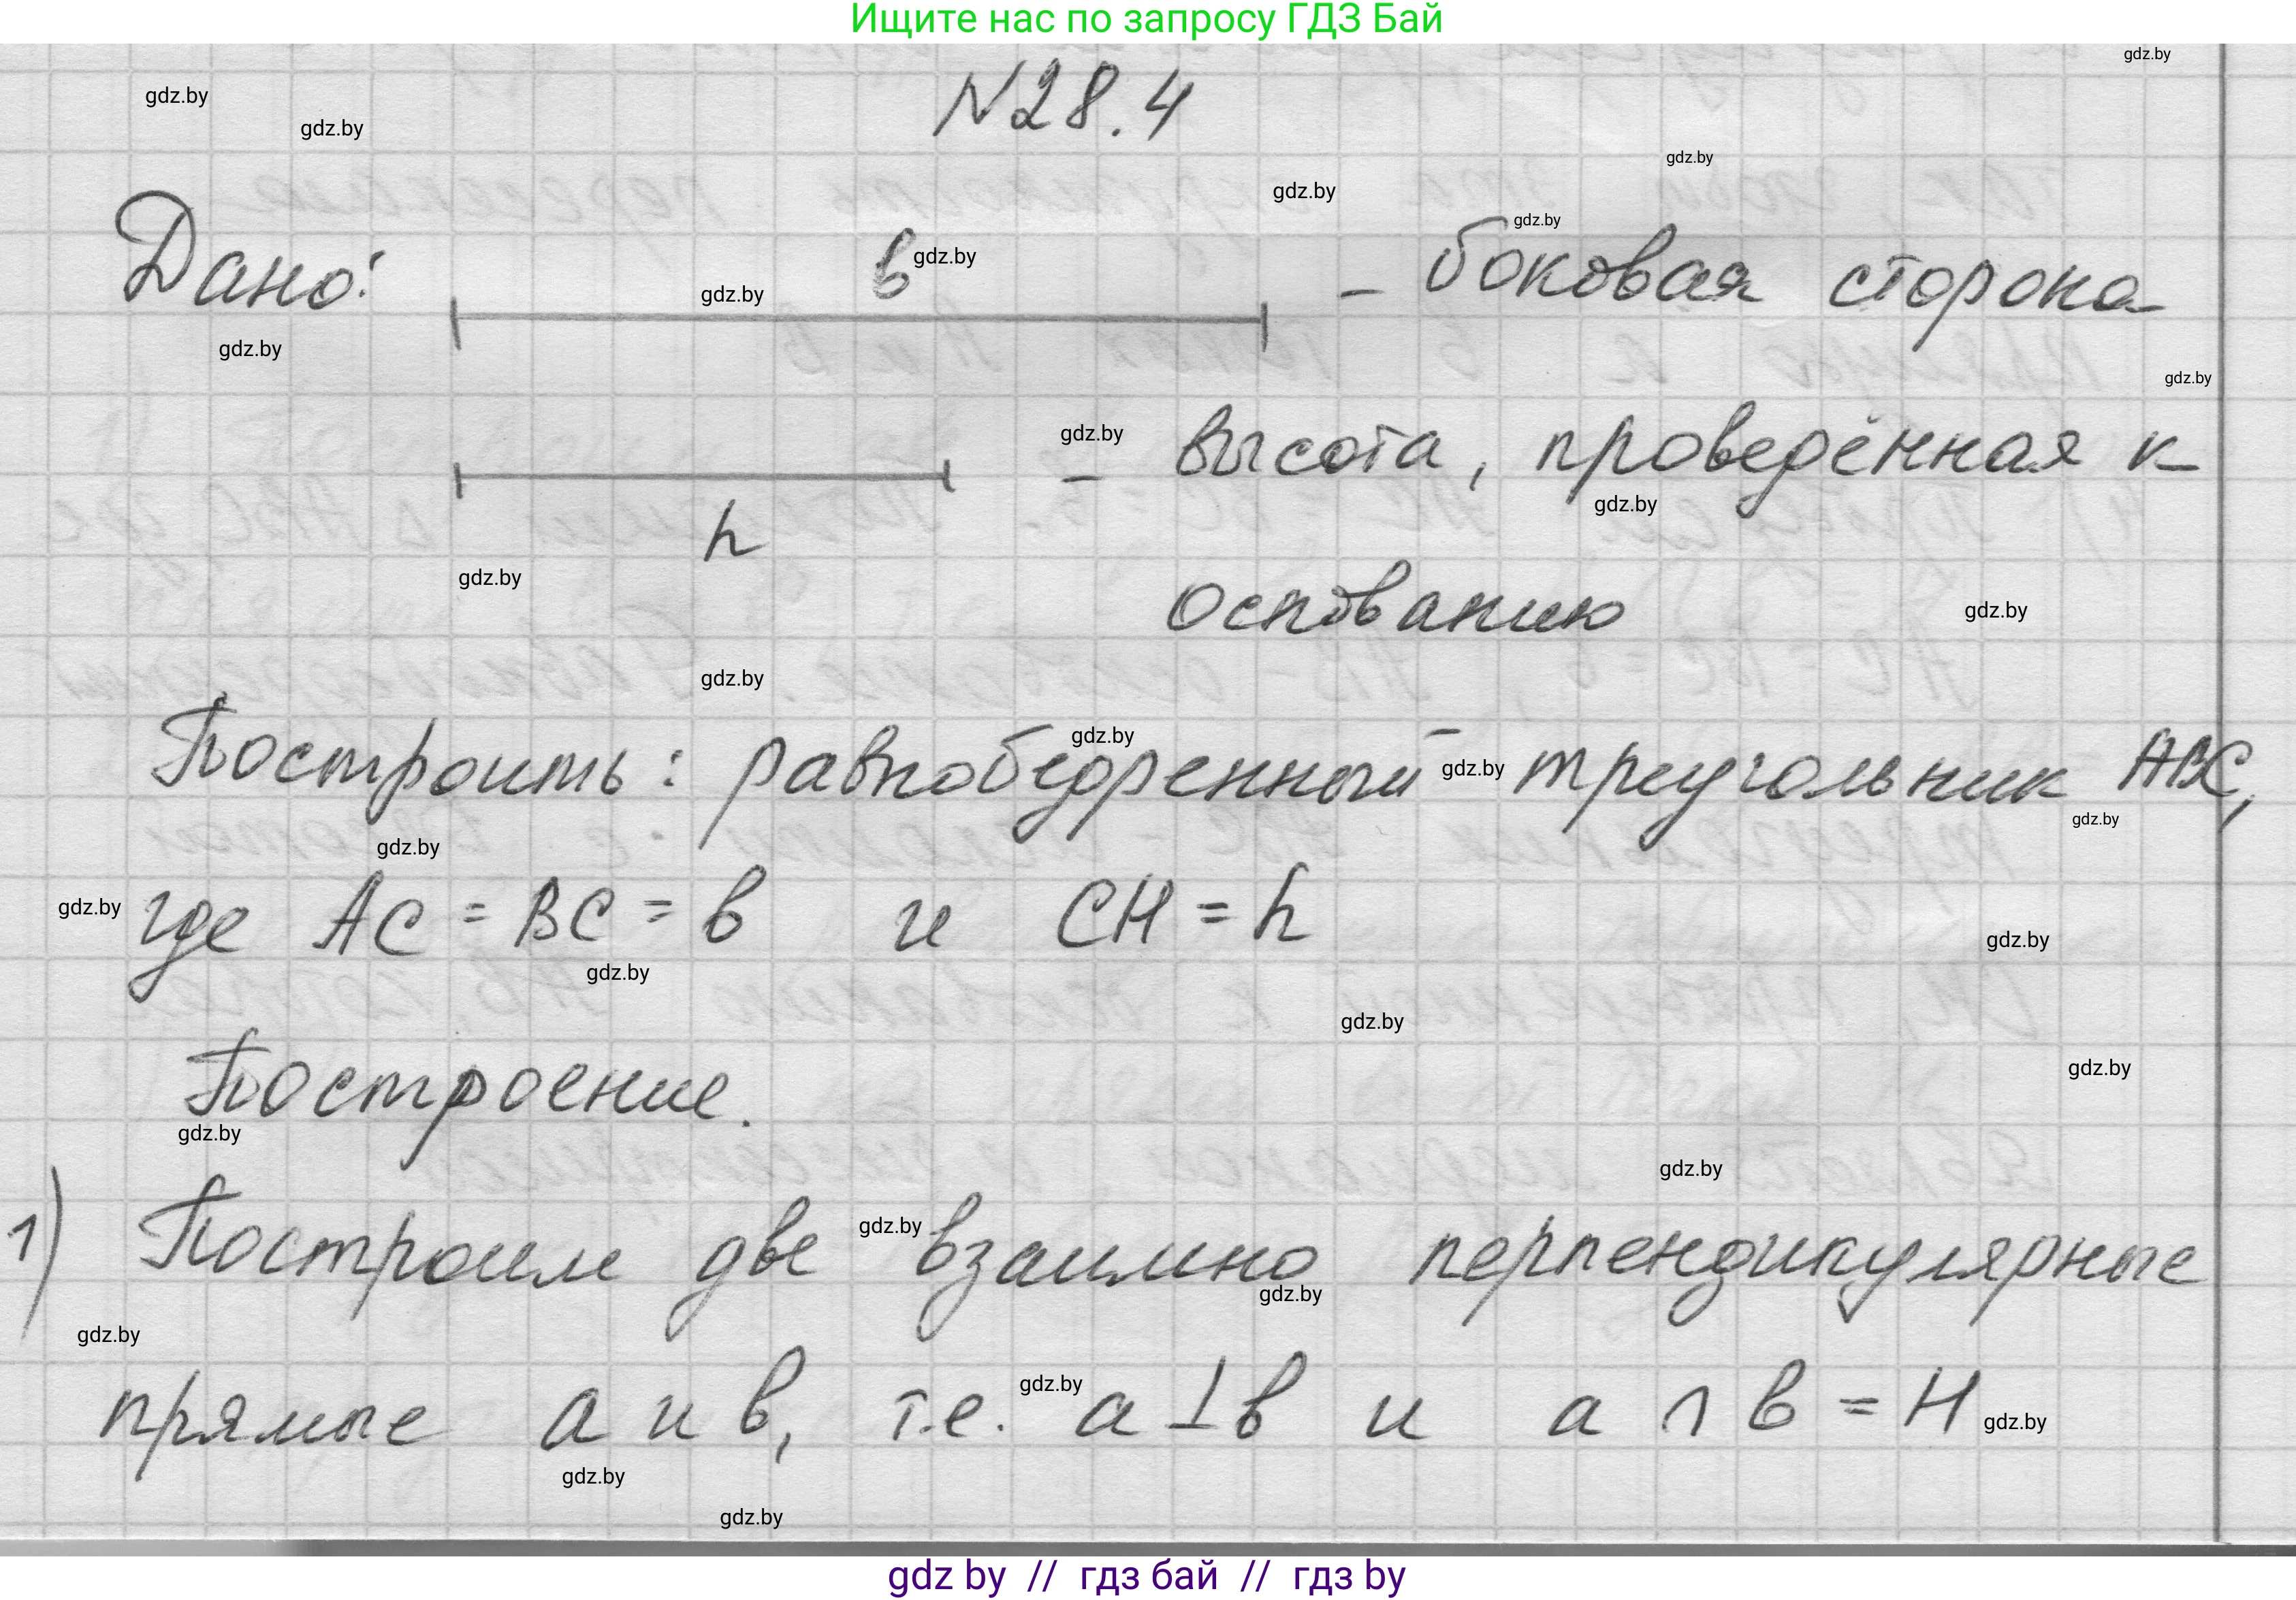 Ищите нас по запросу ГДЗ Бай
gdz.by
gdz.by
gdz.by
№28.4
gdz.by
gdz.by
gdz.by
Дано: в gdz.by - боковая сторона
gdz.by
gdz.by
gdz.by
gdz.by - высота, проведённая к
gdz.by
h
gdz.by
основанию gdz.by
gdz.by
gdz.by
Построить: равнобедренный gdz.by треугольник ABC,
gdz.by
gdz.by
gdz.by где AC = BC = в и CH = h
gdz.by
gdz.by
gdz.by
gdz.by
Построение.
gdz.by
gdz.by
1) Построим две gdz.by взаимно перпендикулярные
gdz.by
gdz.by
прямые a и в, т.е. gdz.by a ⊥ в и a ∩ в = H gdz.by
gdz.by
gdz.by
gdz by // гдз бай // гдз by